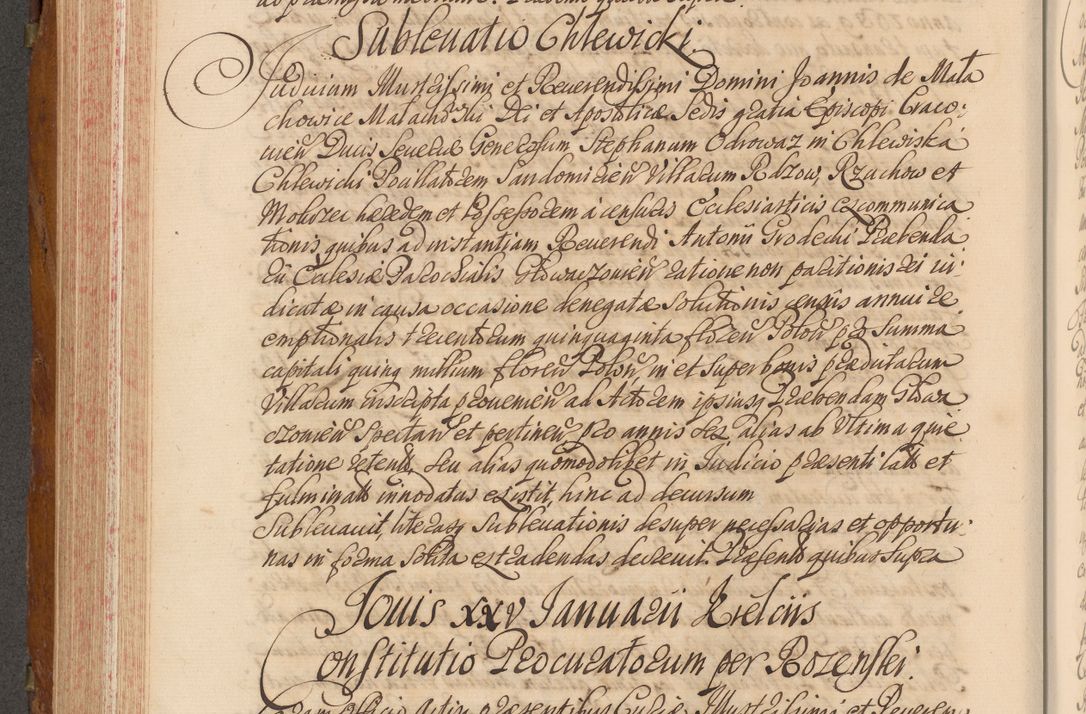 Sublevatio Chlewicki.
Judicium Illustrissimi et Reverendissimi Domini Joannis de Mała
chowice Małachowski Dei et Apostolicæ Sedis gratia Episcopi Craco:
vien Ducis Severiæ Generosum Stephanum Odrowaz in Chlewiska
Chlewicki Pocillatorem Sandomirien Villarum Rdzow, Rzachow et
Mokrzec hæredem et Possessorem á censuris Ecclesiasticis excommunica
tionis, quibus ad instantiam Reverendi Antonii Grodecki Præbenda
rii Ecclesiæ Parochialis Głowaczovien ratione non paritionis rei iu
dicatæ in causa occasione denegatæ solutionis census annui re
emptionalis trecentorum quinquaginta floren Polon pro Summa
capitali quinq millium floren Polon in et super bonis prædictarum
Villarum inscripta provenien ad Actorem ipsiusq Præbendam Głowa
czovien spectan et pertinen pro annis sex alias ab ultima quie
tatione retent, seu alias quomodolibet in Judicio præsenti latis et
fulminatis innodatus extitit, hinc ad decursum
Sublevavit, literasq Sublevationis desuper necessarias et opportu:
nas in forma solita extradendas decrevit. Præsentib quibus supra
Jovis xxv Januarii Kielciis
Constitutio Procuratorum per Rozenski.